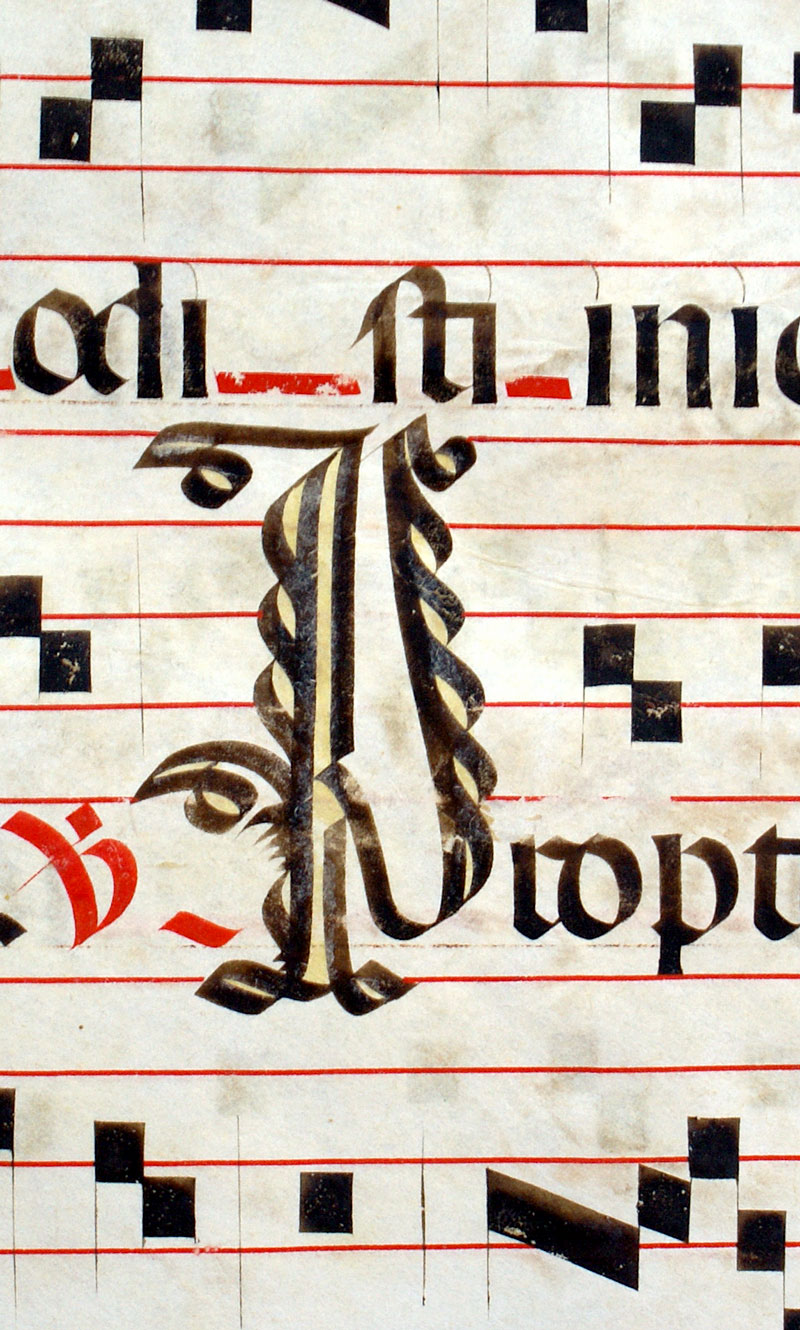 odi ſti ini
℣ Propt